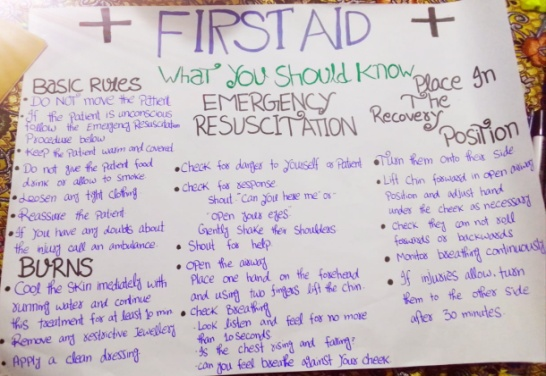 FIRST AID
What You Should Know
BASIC RULES
• DO NOT move the Patient
• If the Patient is unconscious
follow the Emergency Resuscitation
Procedure below
• Keep the Patient warm and covered
• Do not give the Patient food
drink or allow to smoke
• Loosen any tight clothing
• Reassure the Patient
• If you have any doubts about
the injury call an ambulance.
BURNS
• Cool the Skin imediately with
running water and continue
this treatment for at least 10 min
• Remove any restrictive Jewellery
• Apply a clean dressing.
EMERGENCY
RESUSCITATION
• Check for danger to yourself or Patient
• Check for response
Shout "Can you here me" or
"open your eyes"
Gently Shake their Shoulders
• Shout for help
• Open the airway
Place one hand on the forehead
and using two fingers lift the chin.
• Check Breathing
- Look listen and feel for no more
than 10 seconds
- Is the chest rising and falling?
- can you feel breathe against your cheek
Place In
The
Recovery
Position
• Turn them onto their side
• Lift Chin forward in open airway
Position and adjust hand
under the cheek as necessary
• Check they can not roll
forwards or backwards
• Monitor breathing continuously
• If injuries allow, turn
them to the other side
after 30 minutes.